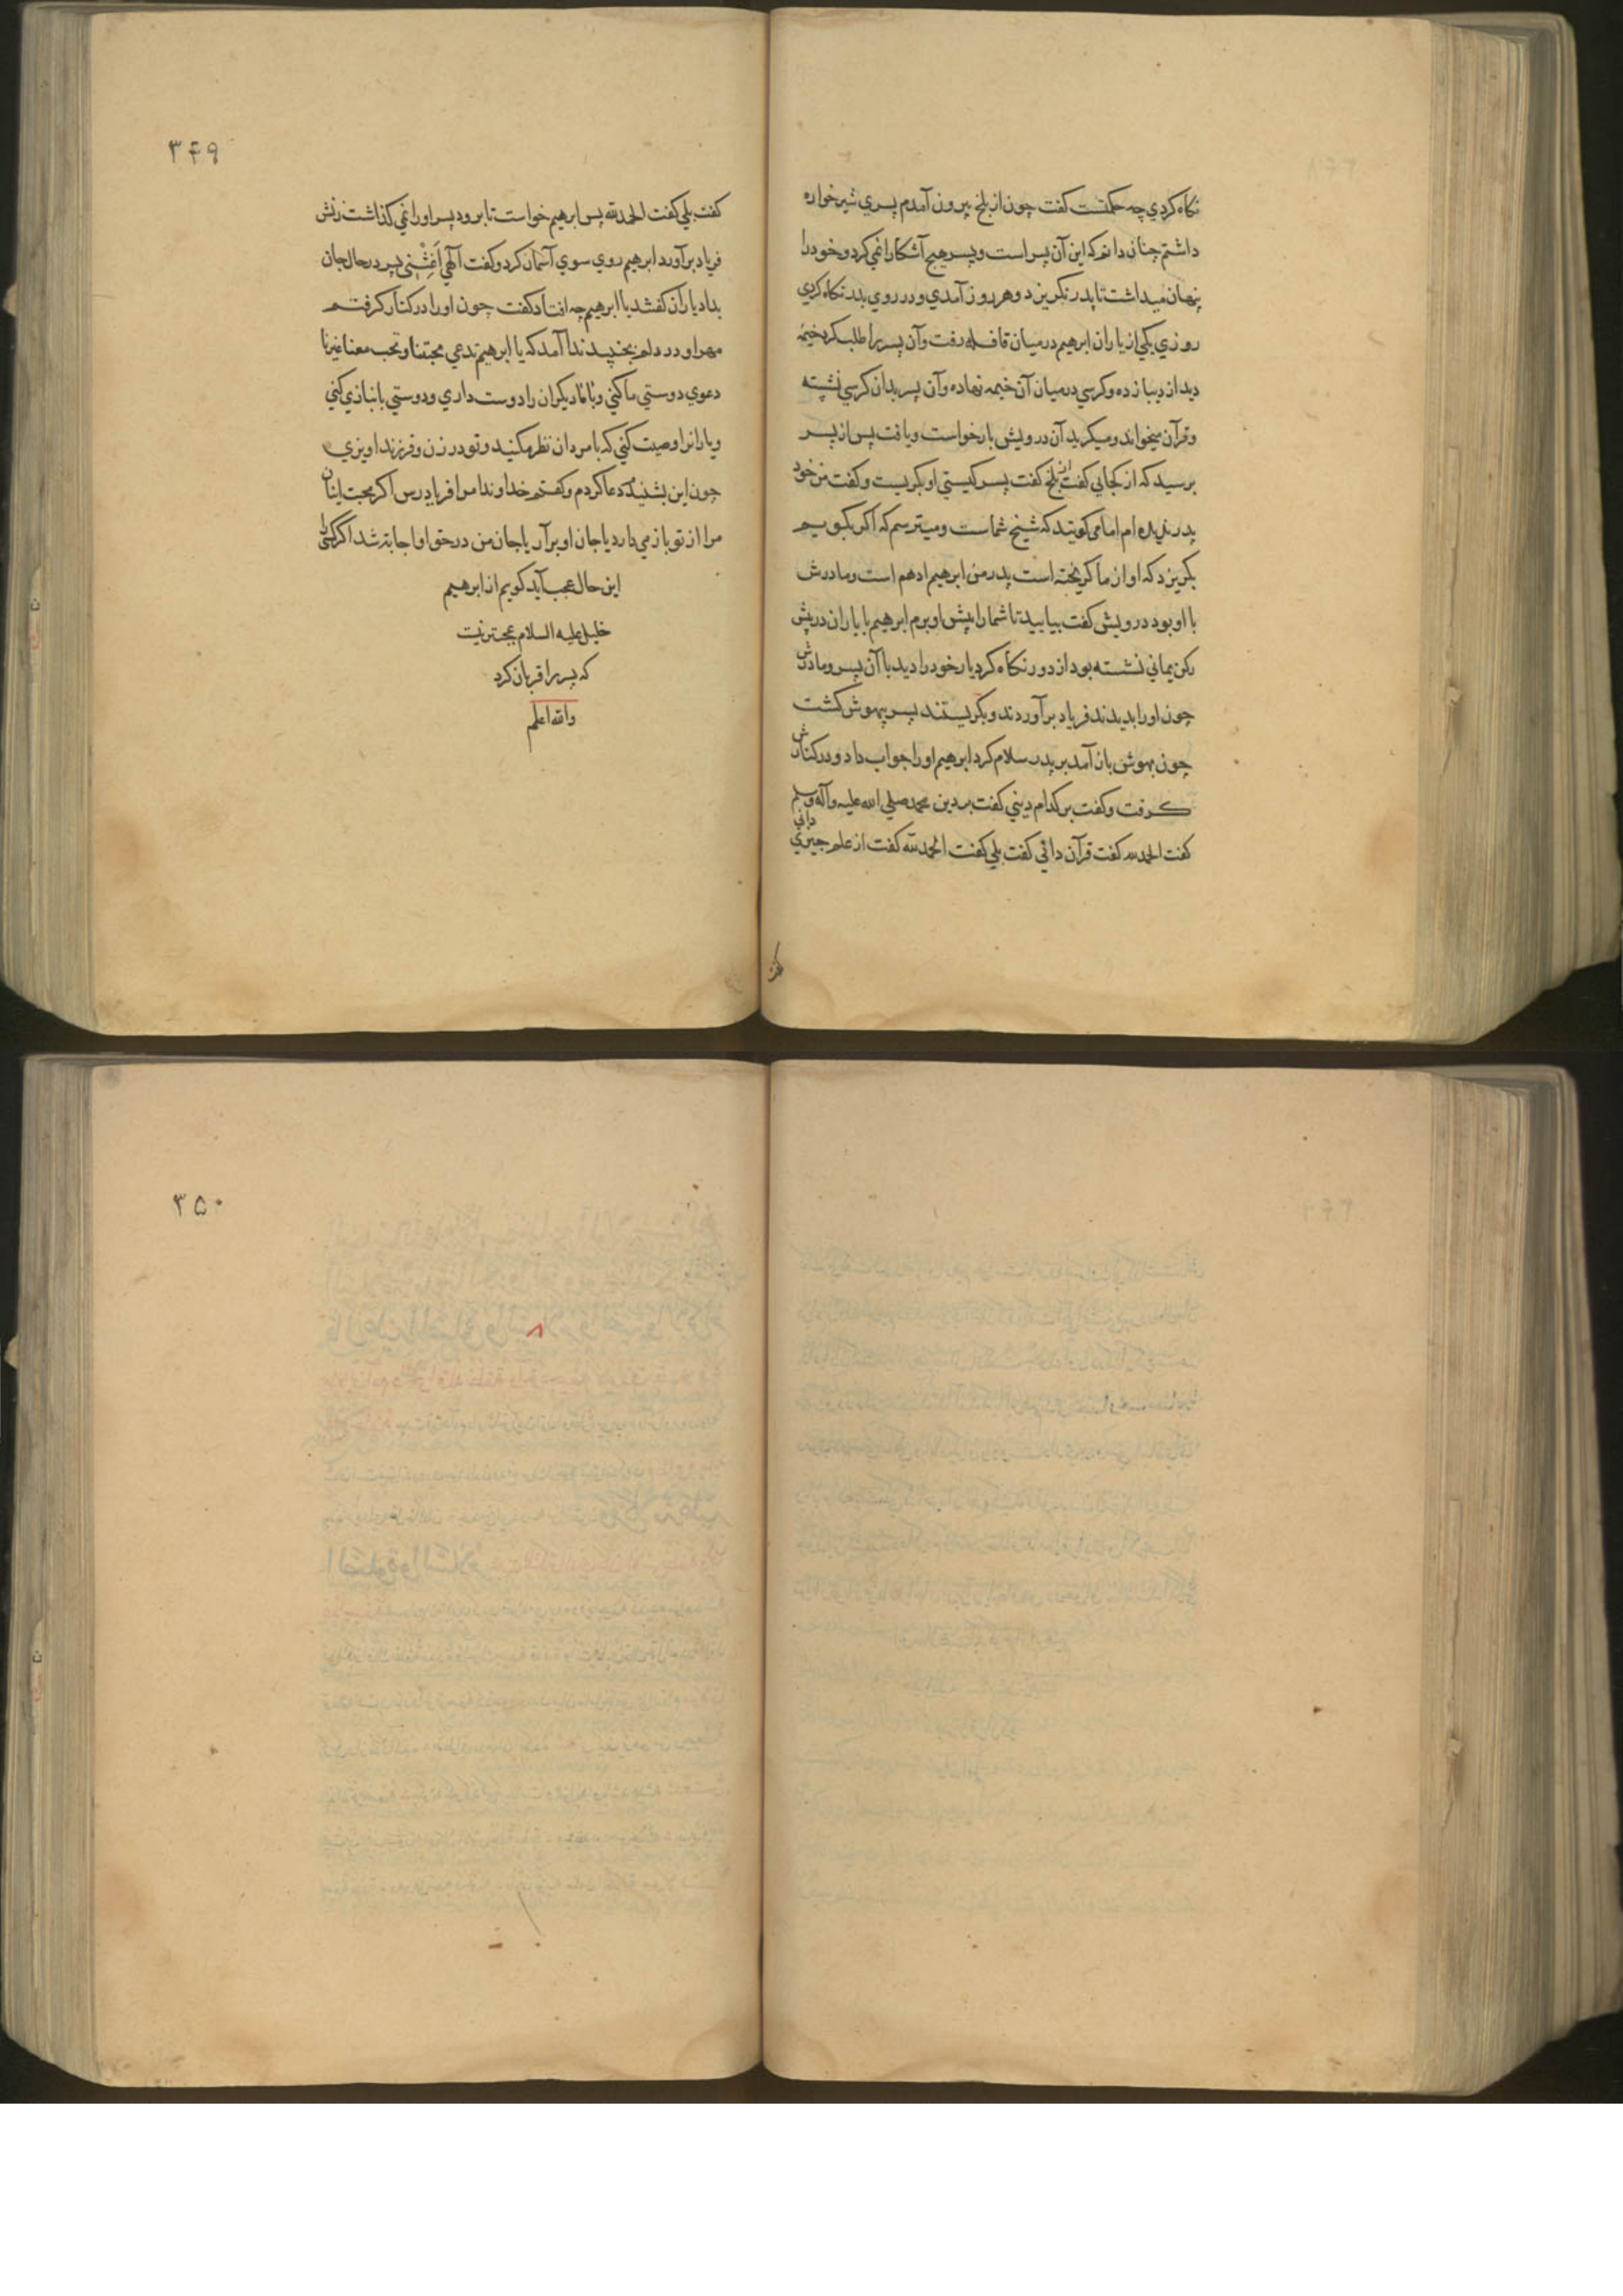 نکاه کردي چه حکمتست کفت چون از بلخ بیرون آمدم پسري شیرخواره
داشتم چنان دانم که این آن پسر است و پسر هیچ آشکارا نمي کرد و خود را
پنهان میداشت تا پدر نکریزد و هر روز آمدي و در روي پدر نکاه کردي
روزي یکي از یاران ابرهیم در میان قافله رفت و آن پسر را طلب کرد خیمهٔ
دید از دیبا زده و کرسي در میان آن خیمه نهاده و آن پسر بدان کرسي نشسته
و قرآن میخواند و میکرید آن درویش بار خواست و یافت پس از پسر
پرسید که از کجایي کفت از بلخ کفت پسر کیستي او بکریست و کفت من خود
پدر ندیده ام اما می کویند که شیخ شماست و میترسم که اکر بکویم
بکریزد که او از ما کریخته است پدر من ابرهیم ادهم است و مادرش
با او بود درویش کفت بیایید تا شما را پیش او برم ابرهیم با یاران در پیش
رکن یماني نشسته بود از دور نکاه کرد یار خود را دید با آن پسر و مادرش
چون او را بدیدند فریاد برآوردند و بکریستند پسر بیهوش کشت
چون بهوش باز آمد بر پدر سلام کرد ابرهیم او را جواب داد و در کنارش
کرفت و کفت بر کدام دیني کفت بر دین محمد صلي الله علیه وآله وسلم
کفت الحمد لله کفت قرآن داني کفت بلي کفت الحمد لله کفت از علم چیزي داني
کفت
۳۴۹
کفت بلي کفت الحمد لله پس ابرهیم خواست تا برود پسر او را نمي کذاشت زنش
فریاد برآورد ابرهیم روي سوي آسمان کرد و کفت آلهي اَغِثْنِي پسر در حال جان
بداد یاران کفتند یا ابرهیم چه افتاد کفت چون او را در کنار کرفتم
مهر او در دلم بجنبید ندا آمد که یا ابرهیم تدعي محبتنا و تحب معنا غیرنا
دعوي دوستي ما کني و با ما دیکران را دوست داري و دوستي بانبازي کني
و یارانرا وصیت کني که بامردان نظر مکنید و تو در زن و فرزند اویزي
چون این بشنیدم دعا کردم و کفتم خداوندا مرا فریاد رس اکر محبت اینان
مرا از تو باز مي دارد یا جان او برآر یا جان من در حق او اجابت شد اکر کسي را
این حال عجب آید کویم از ابرهیم
خلیل علیه السلام عجبتر نیست
که پسر را قربان کرد
والله اعلم
۳۵۰